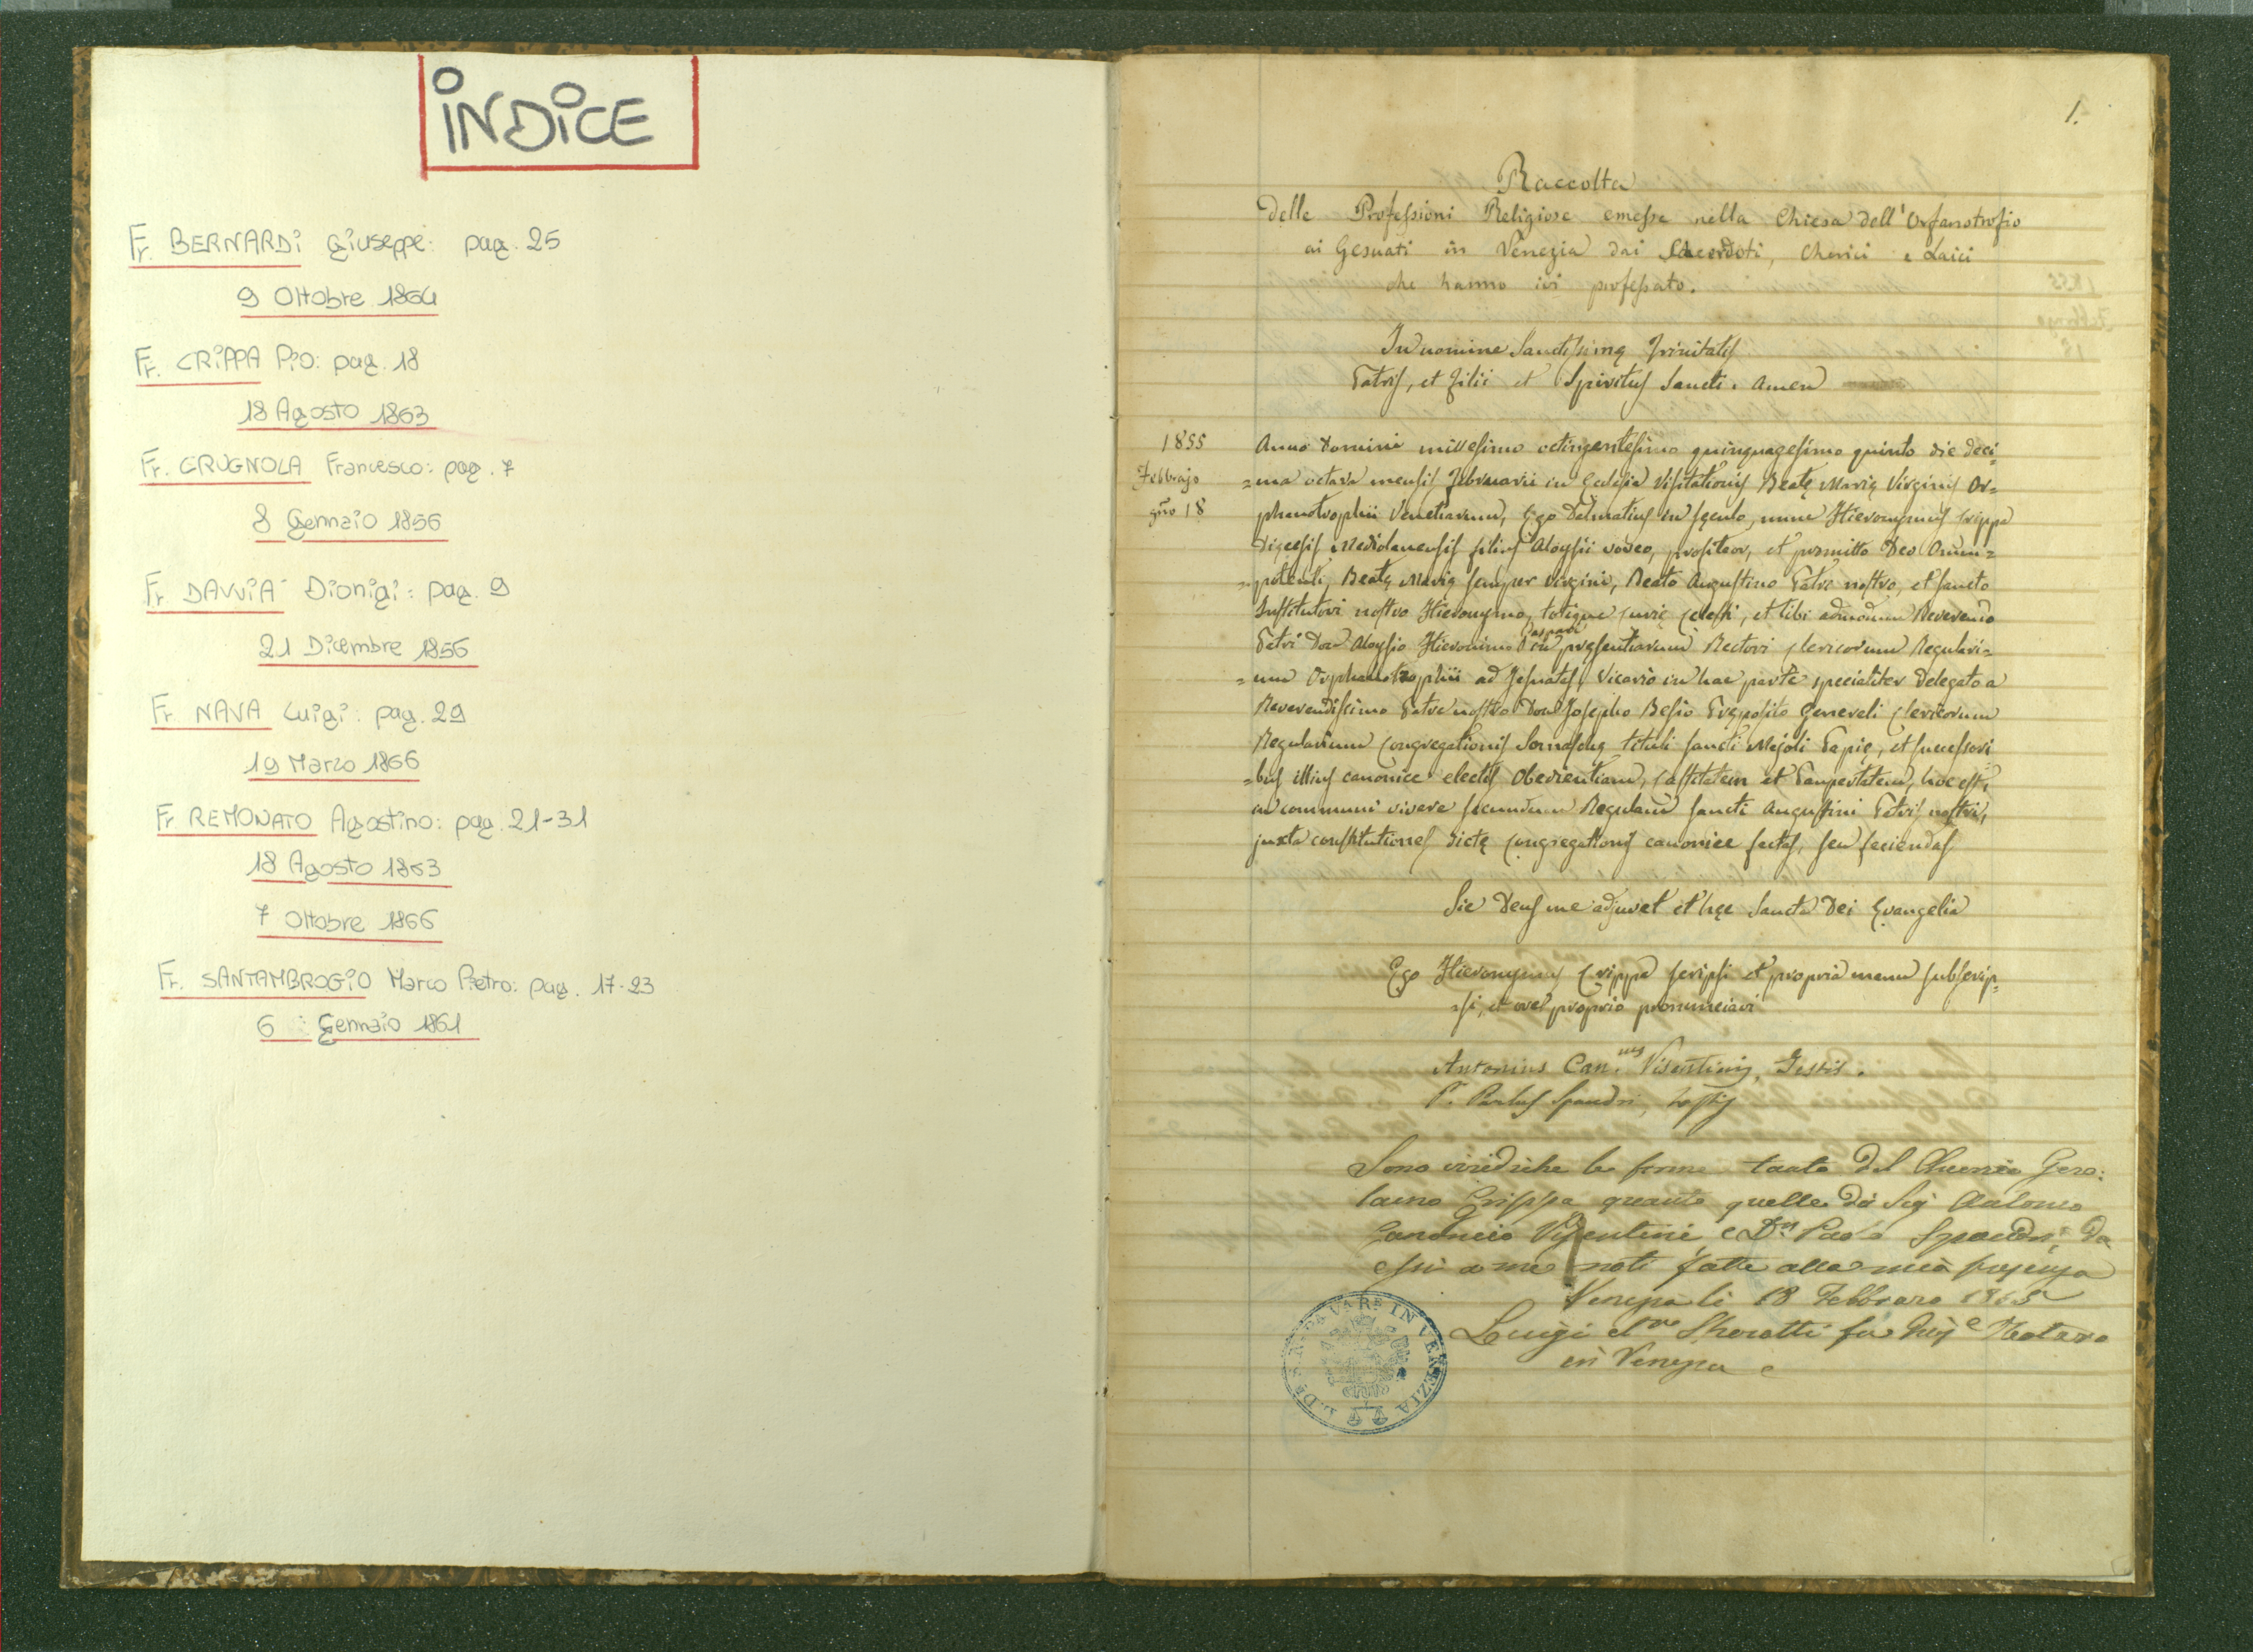 INDICE
Fr. BERNARDI Giuseppe: pag. 25
9 Ottobre 1864
Fr. CRIPPA Pio: pag. 18
18 Agosto 1863
Fr. GRUGNOLA Francesco: pag. 7
8 Gennaio 1856
Fr. DAVVIA' Dionigi: pag. 9
21 Dicembre 1856
Fr. NAVA Luigi: pag. 29
19 Marzo 1866
Fr. REMONATO Agostino: pag. 21-31
18 Agosto 1863
7 Ottobre 1866
Fr. SANTAMBROGIO Marco Pietro: pag. 17-23
6 Gennaio 1861
1.
Raccolta
delle Professioni Religiose emesse nella Chiesa dell'Orfanotrofio
ai Gesuati in Venezia dai Sacerdoti, Cherici e Laici
che hanno ivi professato.
In nomine Sanctissimę Trinitatis
Patris, et Filii et Spiritus Sancti. Amen
1855
Febbrajo
gno 18
Anno Domini millesimo octingentesimo quinquagesimo quinto die deci=
=ma octava mensis Februarii in Ecclesia Visitationis Beatę Marię Virginis Or=
phanotrophii Venetiarum, Ego Dalmatius in sęculo, nunc Hieronymus Crippa
Dięcesis Mediolanensis filius Aloysii voveo, profiteor, et promitto Deo Omni=
=potenti, Beatę Marię semper Virgini, Beato Augustino Patre nostro, et sancto
Institutori nostro Hieronymo, totique curię cęlesti, et tibi admodum Reverendo
Patri Don Aloysio Hieronimo Gaspari in pręsentiarum Rectori Clericorum Regulari=
=um Orphanotrophii ad Jesuatos, Vicario in hac parte specialiter delegato a
Reverendissimo Patre nostro Don Josepho Besio Pręposito Generali Clericorum
Regularium Congregationis Somaschę tituli sancti Majoli Papię, et successori
=bus illius canonice electis Obedientiam, Castitatem et Paupertatem, hoc est,
in communi vivere secundum Regulam sancti Augustini Patris nostri,
juxta constitutiones dictę Congregationis canonice factas, seu faciendas
Sic Deus me adjuvet et hęc Sancta Dei Evangelia
Ego Hieronymus Crippa scripsi et propria manu subscrip=
=si, et ore proprio pronunciavi
Antonius Can.cus Visentini, Testis.
P. Paulus Spandri, testis
Sono viridiche le firme tanto del Cherico Giro:
lamo Crippa quanto quelle di Sig Antonio
Canonico Visentini, e Dn Paolo Spandri, da
essi a me noti fatte alla mia presenza
Venezia li 18 Febbraro 1855
Luigi fu Notaro
in Venezia
IN VENEZIA